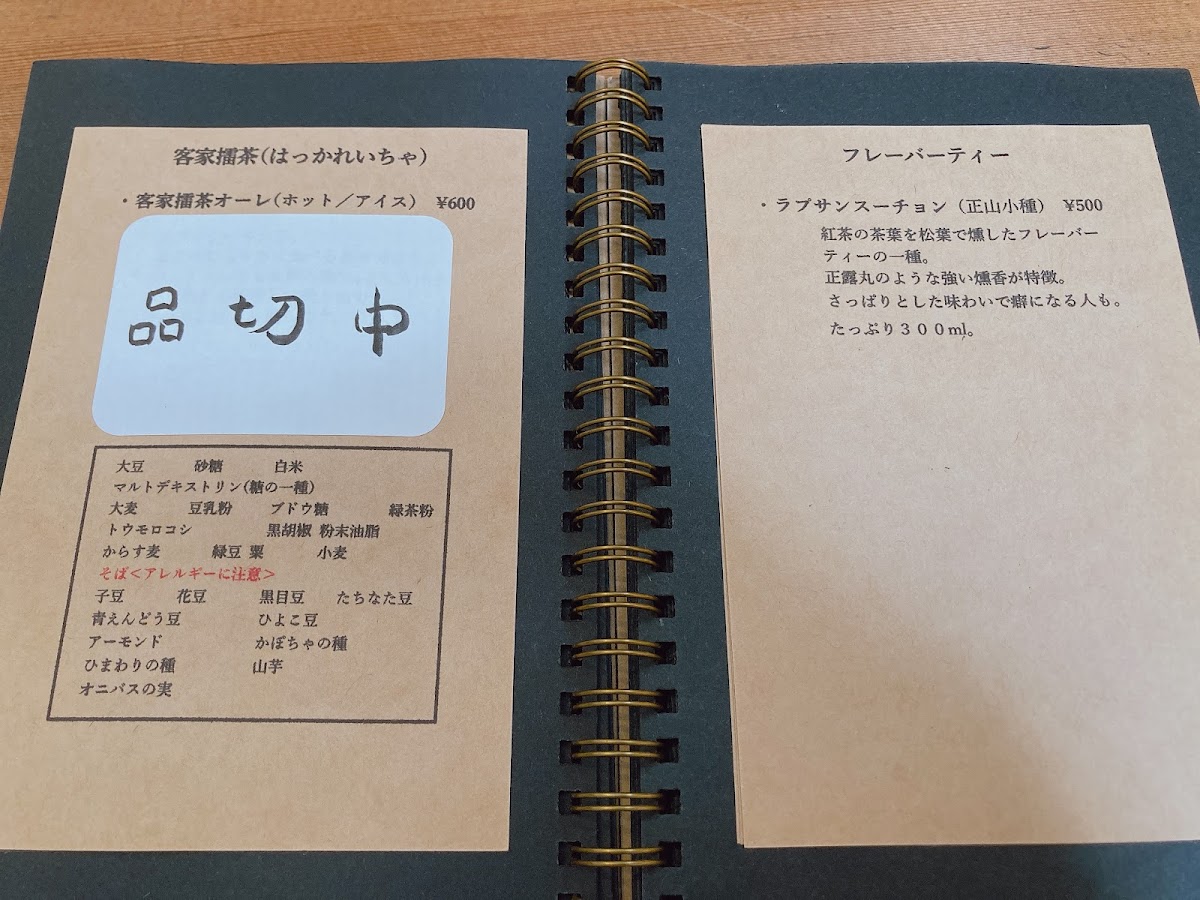 客家擂茶(はっかれいちゃ)
・客家擂茶オーレ(ホット／アイス) ¥600
品切中
大豆 砂糖 白米
マルトデキストリン(糖の一種)
大麦 豆乳粉 ブドウ糖 緑茶粉
トウモロコシ 黒胡椒 粉末油脂
からす麦 緑豆 粟 小麦
そば＜アレルギーに注意＞
子豆 花豆 黒目豆 たちなた豆
青えんどう豆 ひよこ豆
アーモンド かぼちゃの種
ひまわりの種 山芋
オニバスの実
フレーバーティー
・ラプサンスーチョン（正山小種） ¥500
紅茶の茶葉を松葉で燻したフレーバー
ティーの一種。
正露丸のような強い燻香が特徴。
さっぱりとした味わいで癖になる人も。
たっぷり３００ml。